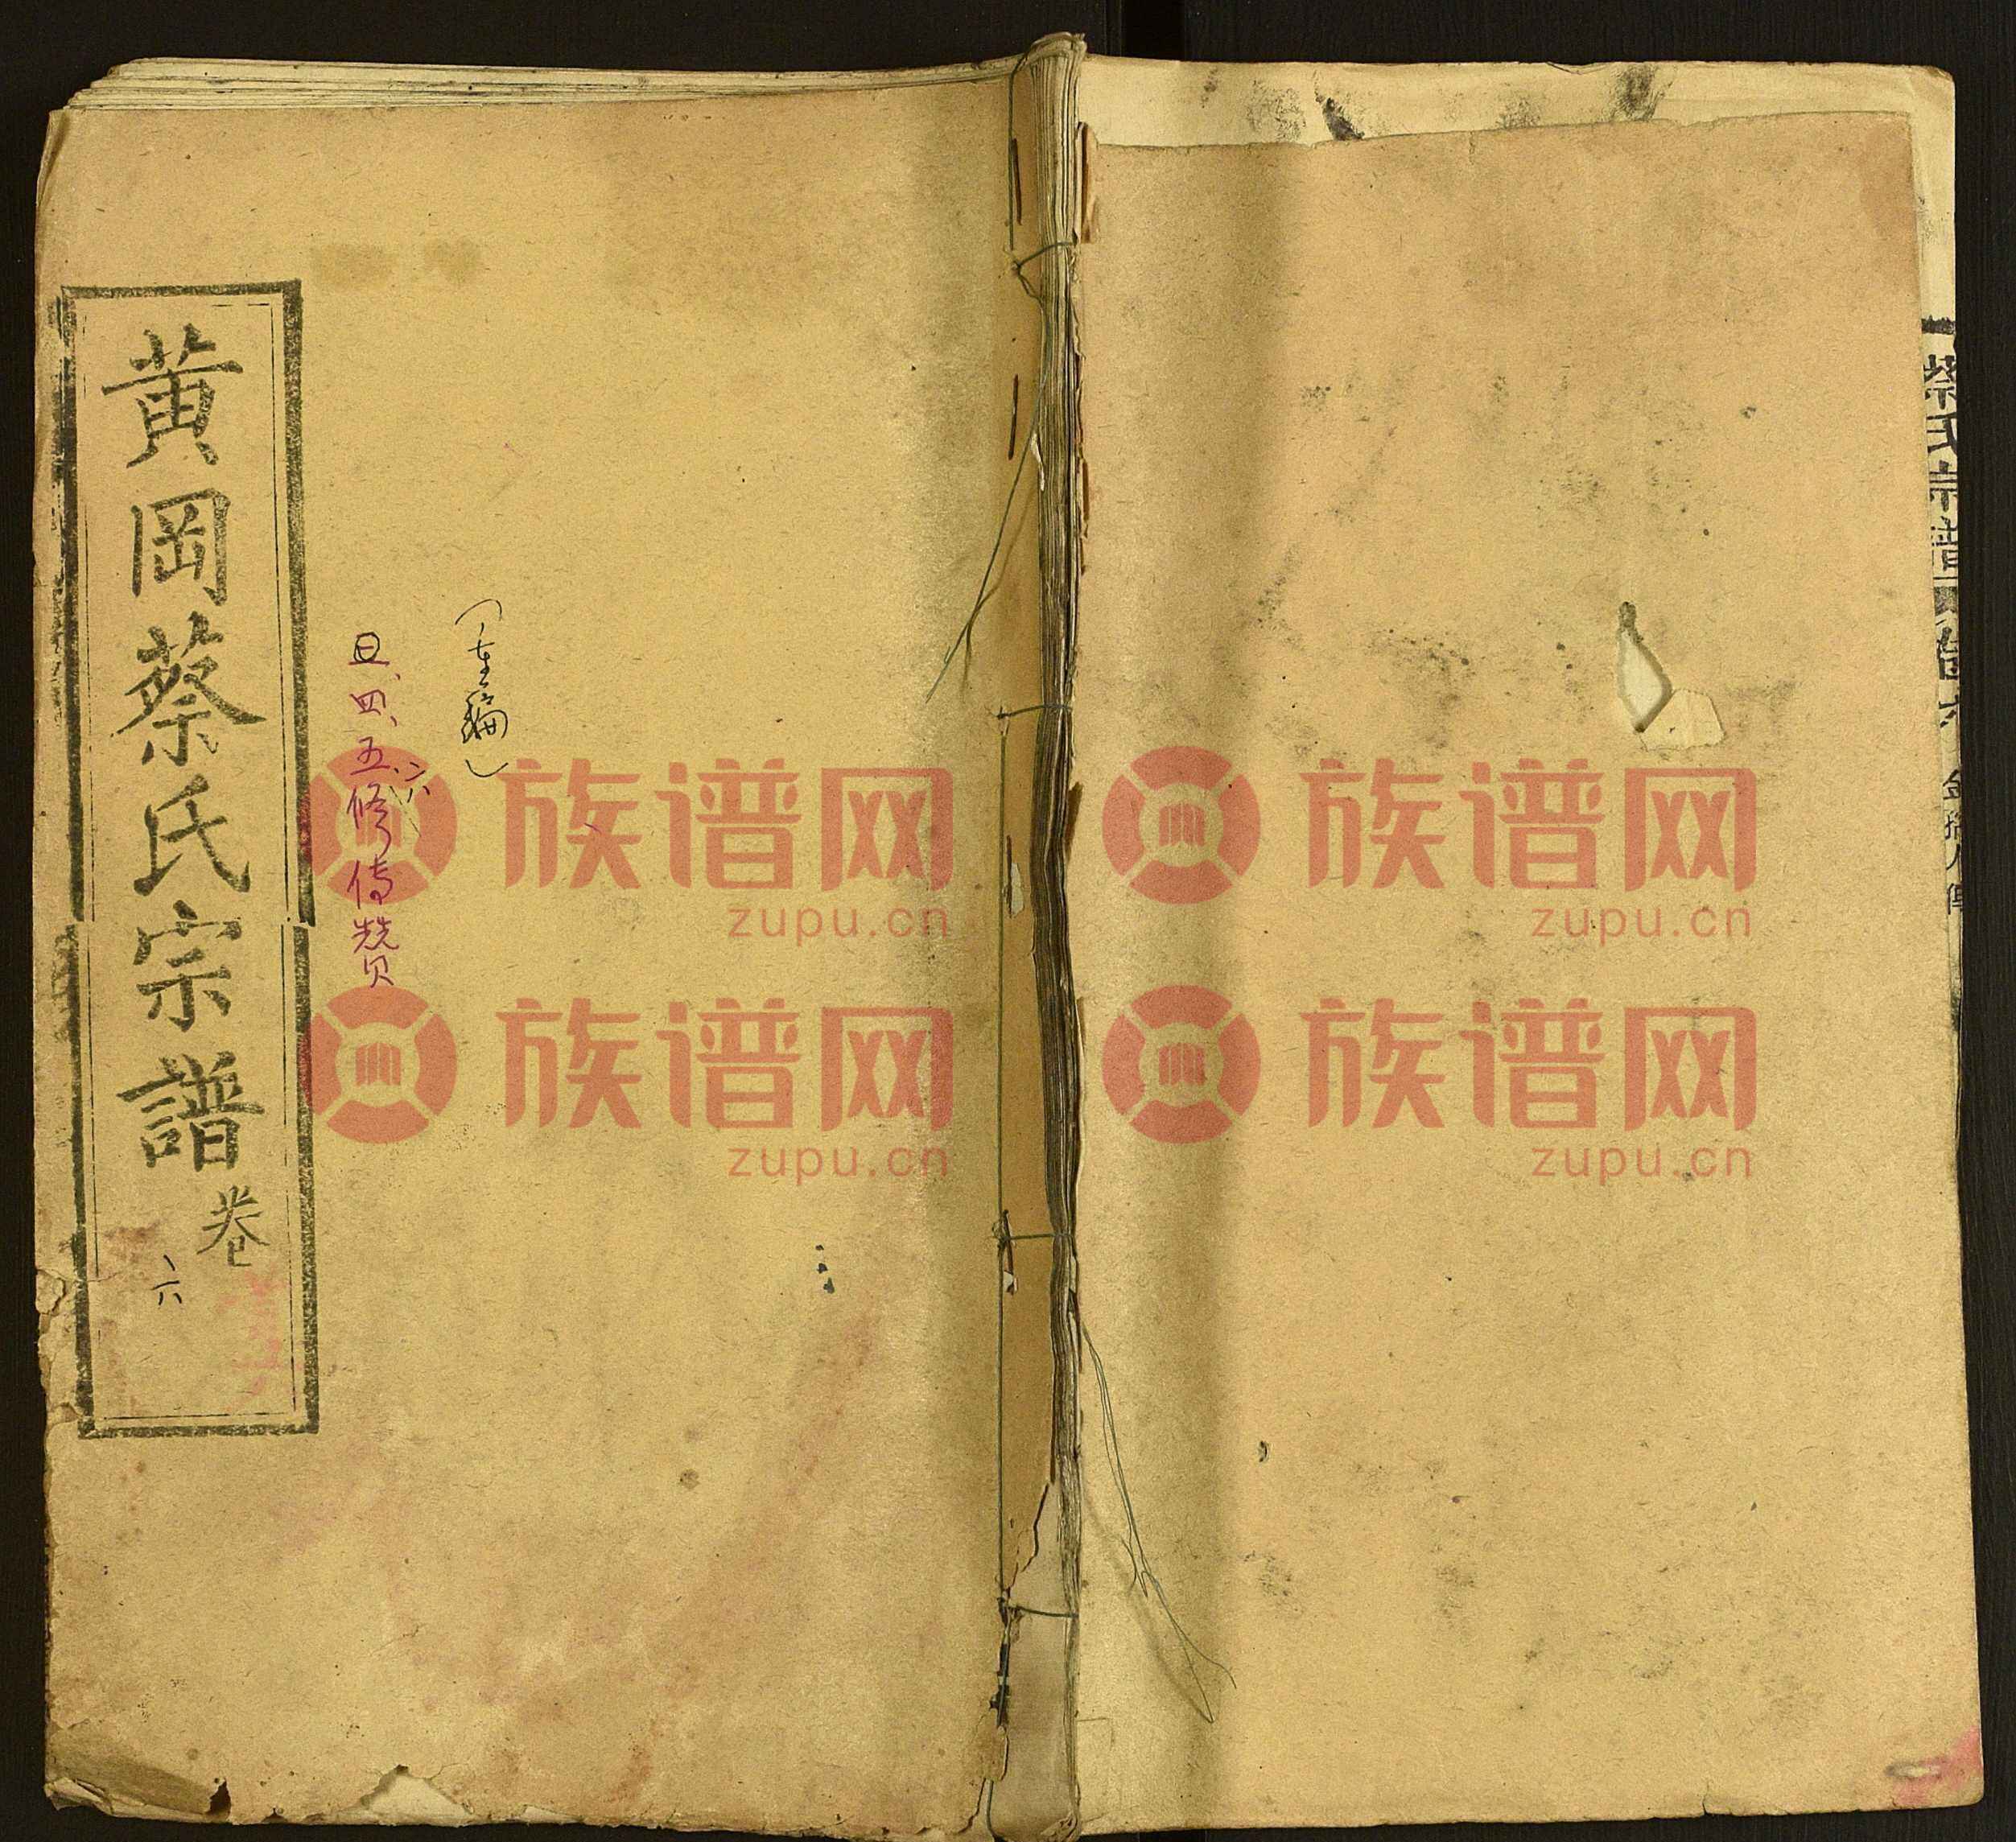 黄岡蔡氏宗譜 卷六
四、五、六修传赞
族谱网
zupu.cn
族谱网
zupu.cn
族谱网
zupu.cn
族谱网
zupu.cn
蔡氏宗譜